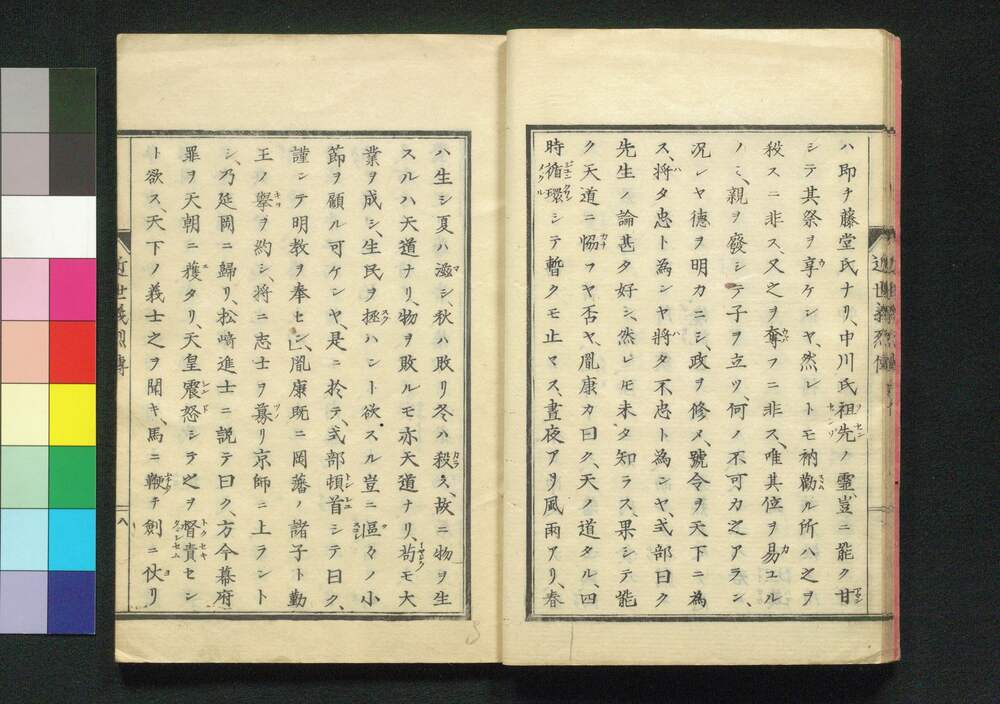 ハ即チ藤堂氏ナリ、中川氏祖先ノ靈、豈ニ能ク甘
シテ其祭ヲ享ケンヤ、然レトモ衲勸ル所ハ之ヲ
殺スニ非ス、又之ヲ奪フニ非ス、唯其位ヲ易ユル
ノミ、親ヲ廢シテ子ヲ立ツ、何ノ不可カ之アラン、
况シヤ德ヲ明カニシ、政ヲ修メ、號令ヲ天下ニ為
ス、將タ忠ト為ンヤ、將タ不忠ト為ンヤ、式部曰ク
先生ノ論甚タ好シ、然レモ未タ知ラス、果シテ能
ク天道ニ恊フヤ否ヤ、胤康カ曰ク、天ノ道タル、四
時循環シテ暫クモ止マス、晝夜アリ風雨アリ、春
近世義烈傳
ハ生シ夏ハ滋シ、秋ハ敗リ冬ハ殺ス、故ニ物ヲ生
スルハ天道ナリ、物ヲ敗ルモ亦天道ナリ、苟モ大
業ヲ成シ、生民ヲ拯ハント欲スル豈ニ區々ノ小
節ヲ顧ル可ケンヤ、是ニ於テ、式部頓首シテ曰ク、
謹シテ明教ヲ奉セン」胤康既ニ岡藩ノ諸子ト勤
王ノ擧ヲ約シ、將ニ志士ヲ募リ京師ニ上ラント
シ、乃延岡ニ歸リ、松﨑進士ニ説テ曰ク、方今幕府
罪ヲ天朝ニ獲タリ、天皇震怒シテ之ヲ督責セン
ト欲ス、天下ノ義士之ヲ聞キ、馬ニ鞭チ劍ニ仗リ
近世義烈傳
八